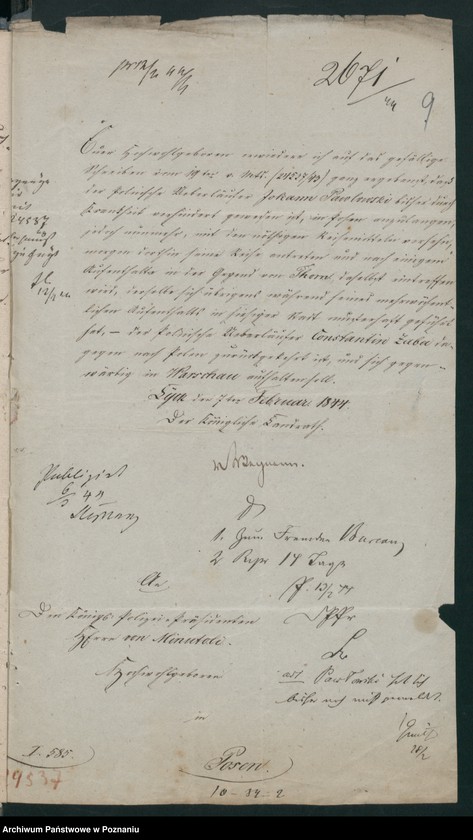 2671/44
9
Euer Hochwohlgeboren erwiedere ich auf das gefällige
Schreiben vom 19ten v. Mts. ganz ergebenst, daß
der Polnische Ueberläufer Johann Pawlowski bisher durch
Krankheit verhindert gewesen ist, in Posen anzulangen,
jedoch nunmehr, mit den nöthigen Reisemitteln versehen
morgen dorthin seine Reise antreten und nach einigem
Aufenthalte in der Gegend von Thorn daselbst eintreffen
wird, derselbe sich übrigens während seines mehrwöchent-
lichen Aufenthalts in hiesiger Stadt musterhaft geführt
hat, – der Polnische Ueberläufer Constantin Zuba da-
gegen nach Polen zurückgekehrt ist, und sich gegen-
wärtig in Warschau aufhalten soll.
Lyck den 7ten Februar 1844.
Der Königliche Landrath.
Publizirt
6/3 44
1. Zum Fremden
2 Repr 14 Tage
13/2 44
An
Den Königl. Polizei-Präsidenten
Herrn von Minutoli.
Hochwohlgeboren
Pawlowski hat sich
bisher noch nicht gemeldet.
in
28/2
I. 585.
9537
Posen.
10 - 24 - 2
Archiwum Państwowe w Poznaniu